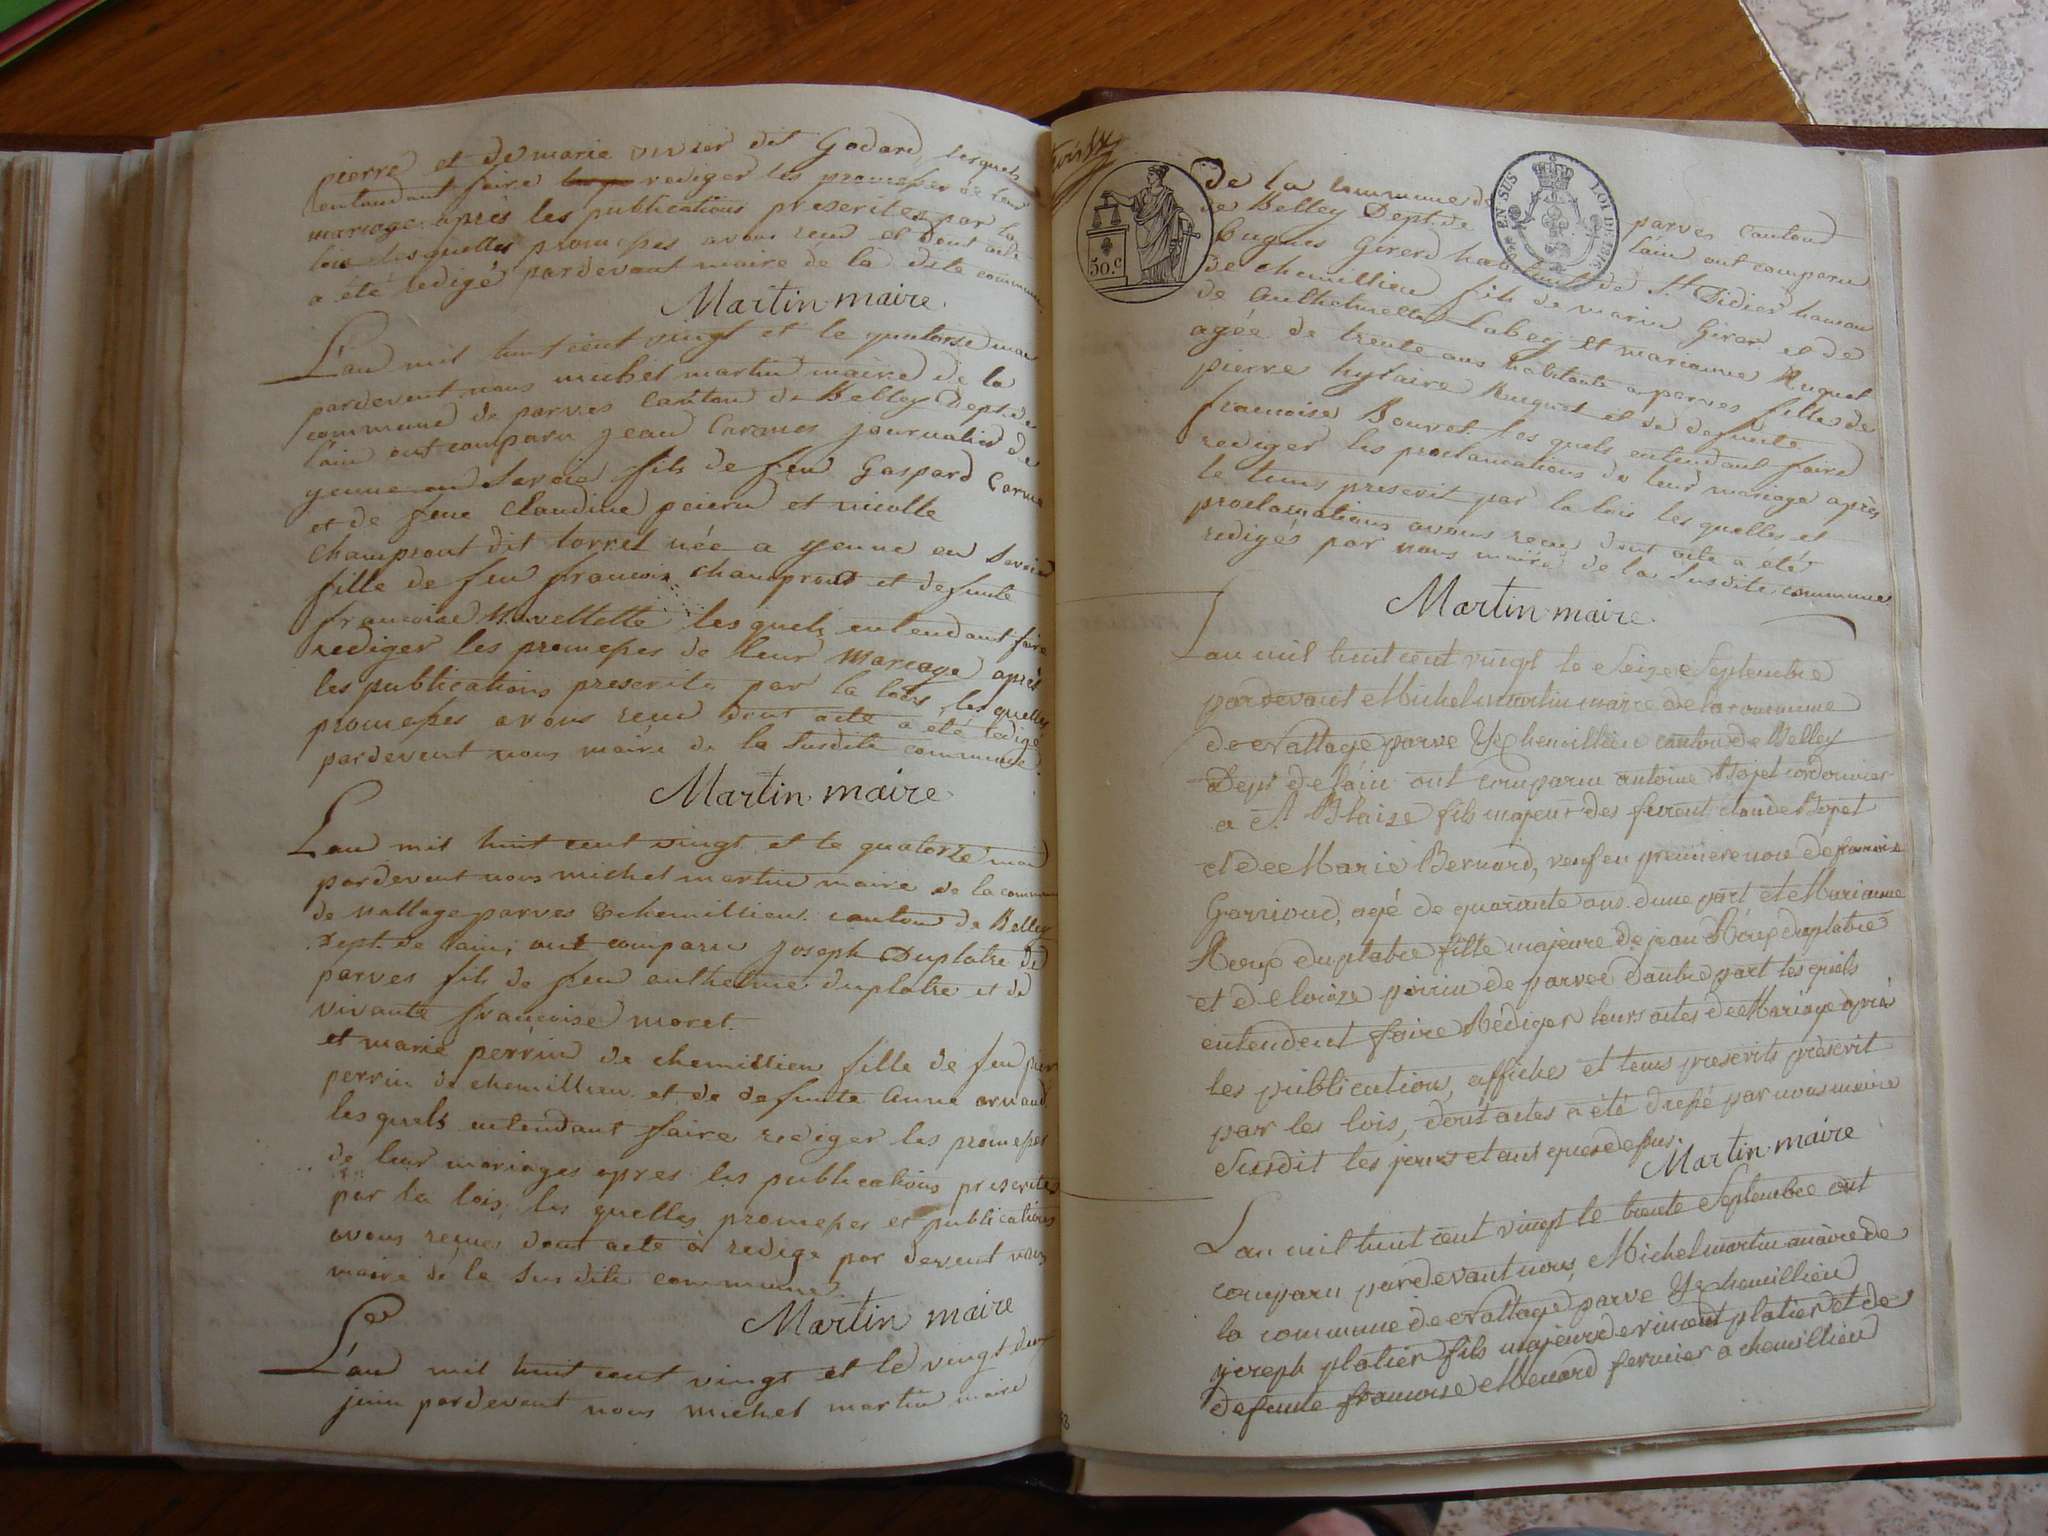 pierre et de marie vivier dit Godard lesquels
entendant faire rediger les promesses de leur
mariage après les publications prescrites par la
lois lesquelles promesses avons recu et dont acte
a été redigé pardevant maire de la dite commune
Martin maire
L'an mil huit cent vingt et le quatorse mai
pardevent nous michel martin maire de la
commune de parves canton de Belley Dept. de
l'ain ont comparu jean Carme journalier de
yenne en Savoie fils de feu Gaspard Carme
et de feue Claudine et nicolle
champrout dit torret née a yenne en Savoie
fille de feu francois champrout et defunte
francoise lesquels entendant faire
rediger les promesses de leur mariage après
les publications prescrite par la lois, lesquelles
promesses avons recu dont acte a été redigé
pardevent nous maire de la susdite commune.
Martin maire
L'an mil huit cent vingt et le quatorze mai
pardevent nous michel martin maire de la commune
de nattage parves & chemillieu canton de Belley
Dept. de l'ain, ont comparu joseph Duplatre de
parves fils de feu anthelme duplatre et de
vivante francoise moret.
et marie perrin de chemillieu fille de feu pierre
perrin de chemillieu et de defunte anne arnaud
lesquels entendant faire rediger les promesses
de leur mariages apres les publications prescrites
par la lois, les quelles promesses et publications
avons reçues dont acte à redige par devent nous
maire de la susdite commune.
Martin maire
L'an mil huit cent vingt et le vingt deux
juin pardevent nous michel martin maire
De la commune de parves canton
de Belley Dept. de lain ont comparu
hugues Girerd habitant de St Didier hameau
de chemillieu fils de marin Girerd et de
de anthelmette Labey et marianne Ruguet
agée de trente ans habitante a parves fille de
pierre hylaire Ruguet et de defunte
francoise Bouvet lesquels entendant faire
rediger les proclamations de leur mariage après
le tems prescrit par la lois les quelles et
proclamations avons recu dont acte a été
redigés par nous maire de la susdite commune
Martin maire.
50.c
EN SUS
LOI DE 1816
L'an mil huit cent vingt le Seize Septembre
pardevant Michel martin maire de la commune
de Nattage parve & chemillieu canton de Belley
Dept de l'ain ont comparu antoine cordonnier
a St Blaize fils majeur des furent claude
et de Marie Bernard, veuf en premiere noce de francoise
agé de quarante ans d'une part et Marianne
duplatre fille majeure de jean duplatre
et de loüize de parve d'autre part lesquels
entendent faire Rédiger leurs actes de Mariage après
les publications, affiches et tems prescrits prescrit
par les lois, dont actes a été dressé par nous maire
Susdit les jours et ant que dessus.
Martin maire
L'an mil huit cent vingt le trente Septembre ont
comparu pardevant nous, Michel martin maire de
la commune de Nattage parve & chemillieu
joseph platier fils majeur de vincent platier et de
defunte francoise Menard fermier a chemillieu